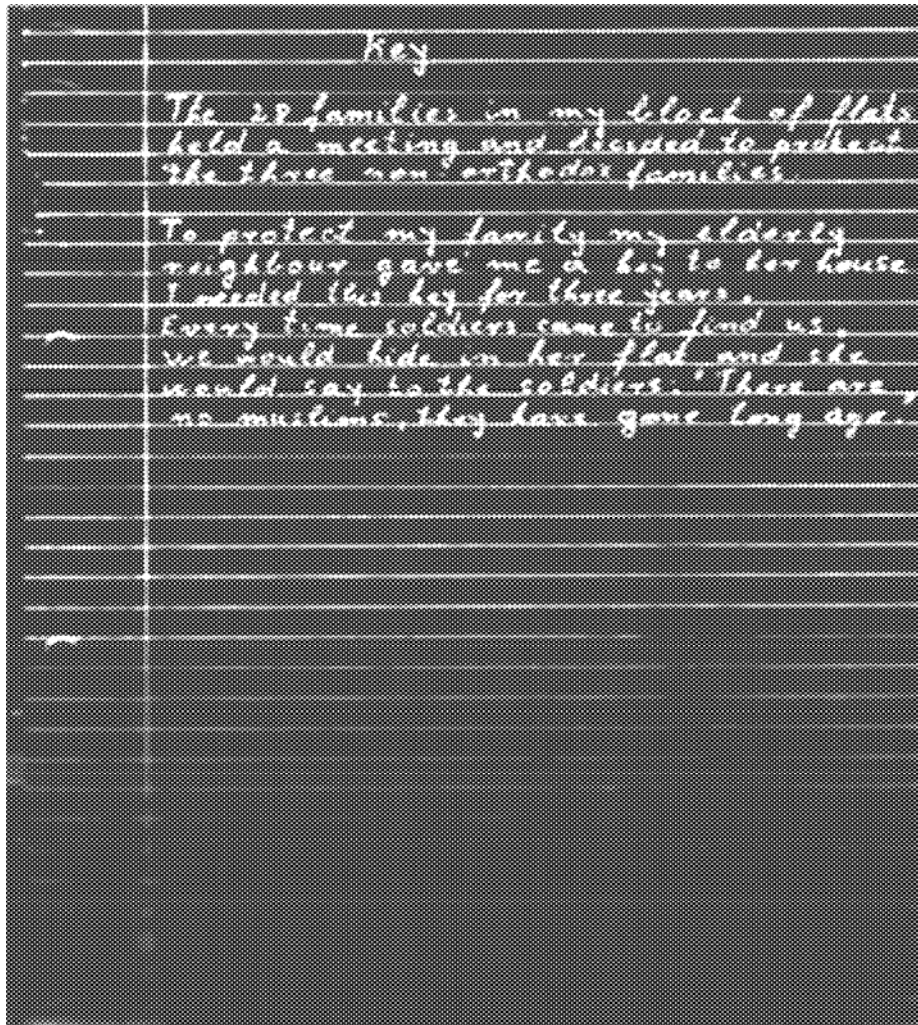 Key
The 28 families in my block of flats
held a meeting and decided to protect
the three non orthodox families.
To protect my family my elderly
neighbour gave me a key to her house
I needed this key for three years.
Every time soldiers came to find us,
we would hide in her flat and she
would say to the soldiers. 'There are
no muslims, they have gone long ago.'